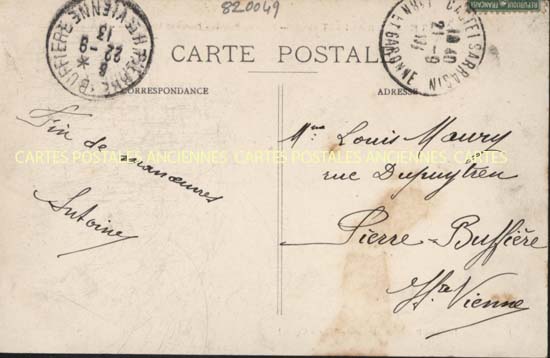 820049
PIERRE-BUFFIERE
Hte VIENNE
8
22 - 9
13
CASTELSARRASIN
TARN ET GARONNE
10 40
21 - 9
REPUBLIQUE FRANÇAISE
CARTE POSTALE
CORRESPONDANCE
ADRESSE
Fin de manœuvres
Antoine
Mme Louis Maury
rue Dupuytren
Pierre-Buffière
Hte Vienne
CARTES POSTALES ANCIENNES CARTES POSTALES ANCIENNES